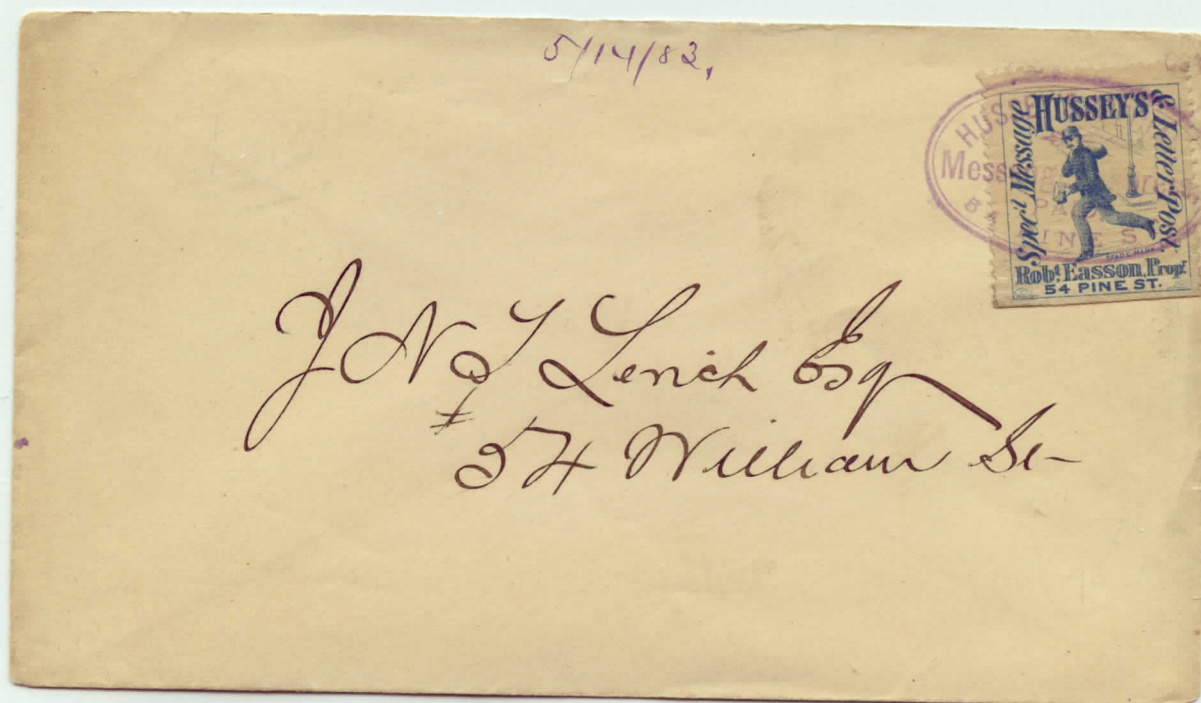 5/14/83,
HUSSEY'S
Spec'l Message
& Letter Post
Robt. Easson, Propr.
54 PINE ST.
J N L Lerich Esq
54 William St